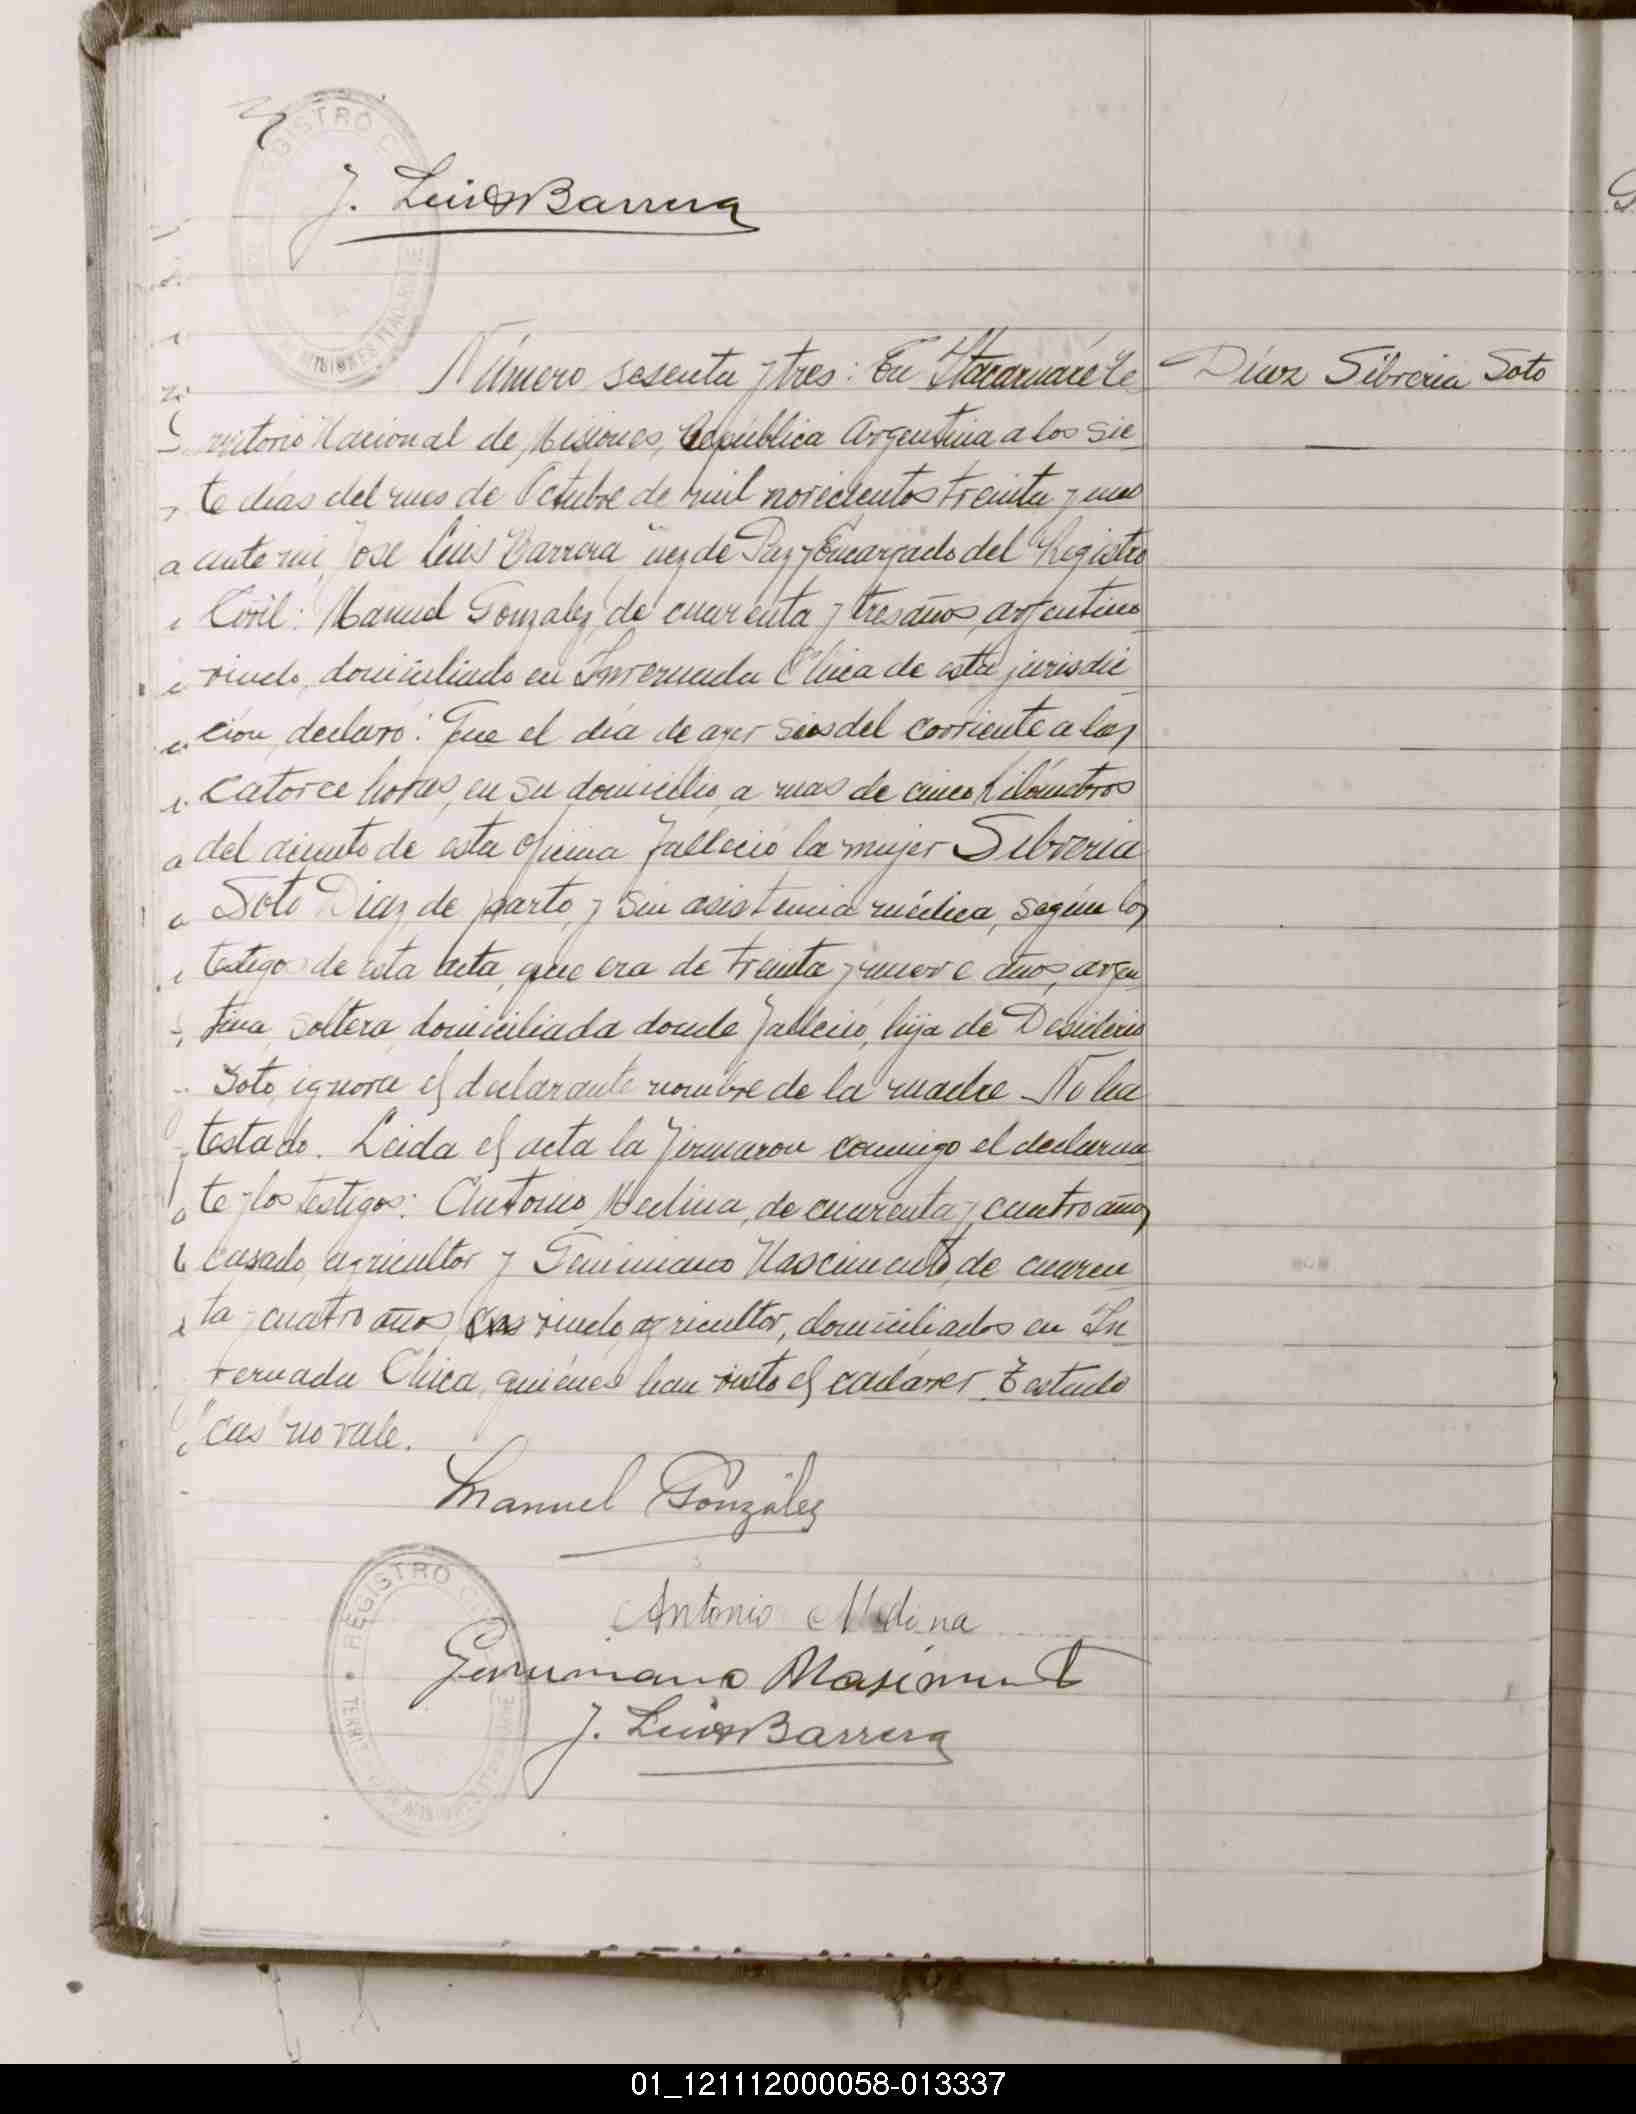 REGISTRO C
J. Luis Barrera
MISIONES ITACARUARE
Número sesenta y tres: En Itacaruaré Te Díaz Silveria Soto
rritorio Nacional de Misiones, República Argentina a los sie
te días del mes de Octubre de mil novecientos treinta y uno
ante mi, José Luis Barrera Juez de Paz y Encargado del Registro
Civil: Manuel Gonzalez, de cuarenta y tres años, argentino
viudo, domiciliado en Invernada Chica de esta jurisdic
ción, declaró: Que el día de ayer seis del corriente a las
catorce horas, en su domicilio, a mas de cinco kilómetros
del asiento de esta oficina falleció la mujer Silveria
Soto Diaz de parto, y sin asistencia médica, según los
testigos de esta acta, que era de treinta y nueve años, argen
tina, soltera, domiciliada donde falleció, hija de Desiderio
Soto, ignora el declarante nombre de la madre. No ha
testado. Leida el acta la firmaron conmigo el declaran
te y los testigos: Antonio Medina, de cuarenta y cuatro años
casado, agricultor y Geminiano Nascimento, de cuaren
ta y cuatro años, cas viudo, agricultor, domiciliados en In
vernada Chica, quiénes han visto el cadáver. Testado
"cas" no vale.
Manuel González
REGISTRO C
Antonio Medina
Geminiano Masimento
J. Luis Barrera
01_121112000058-013337